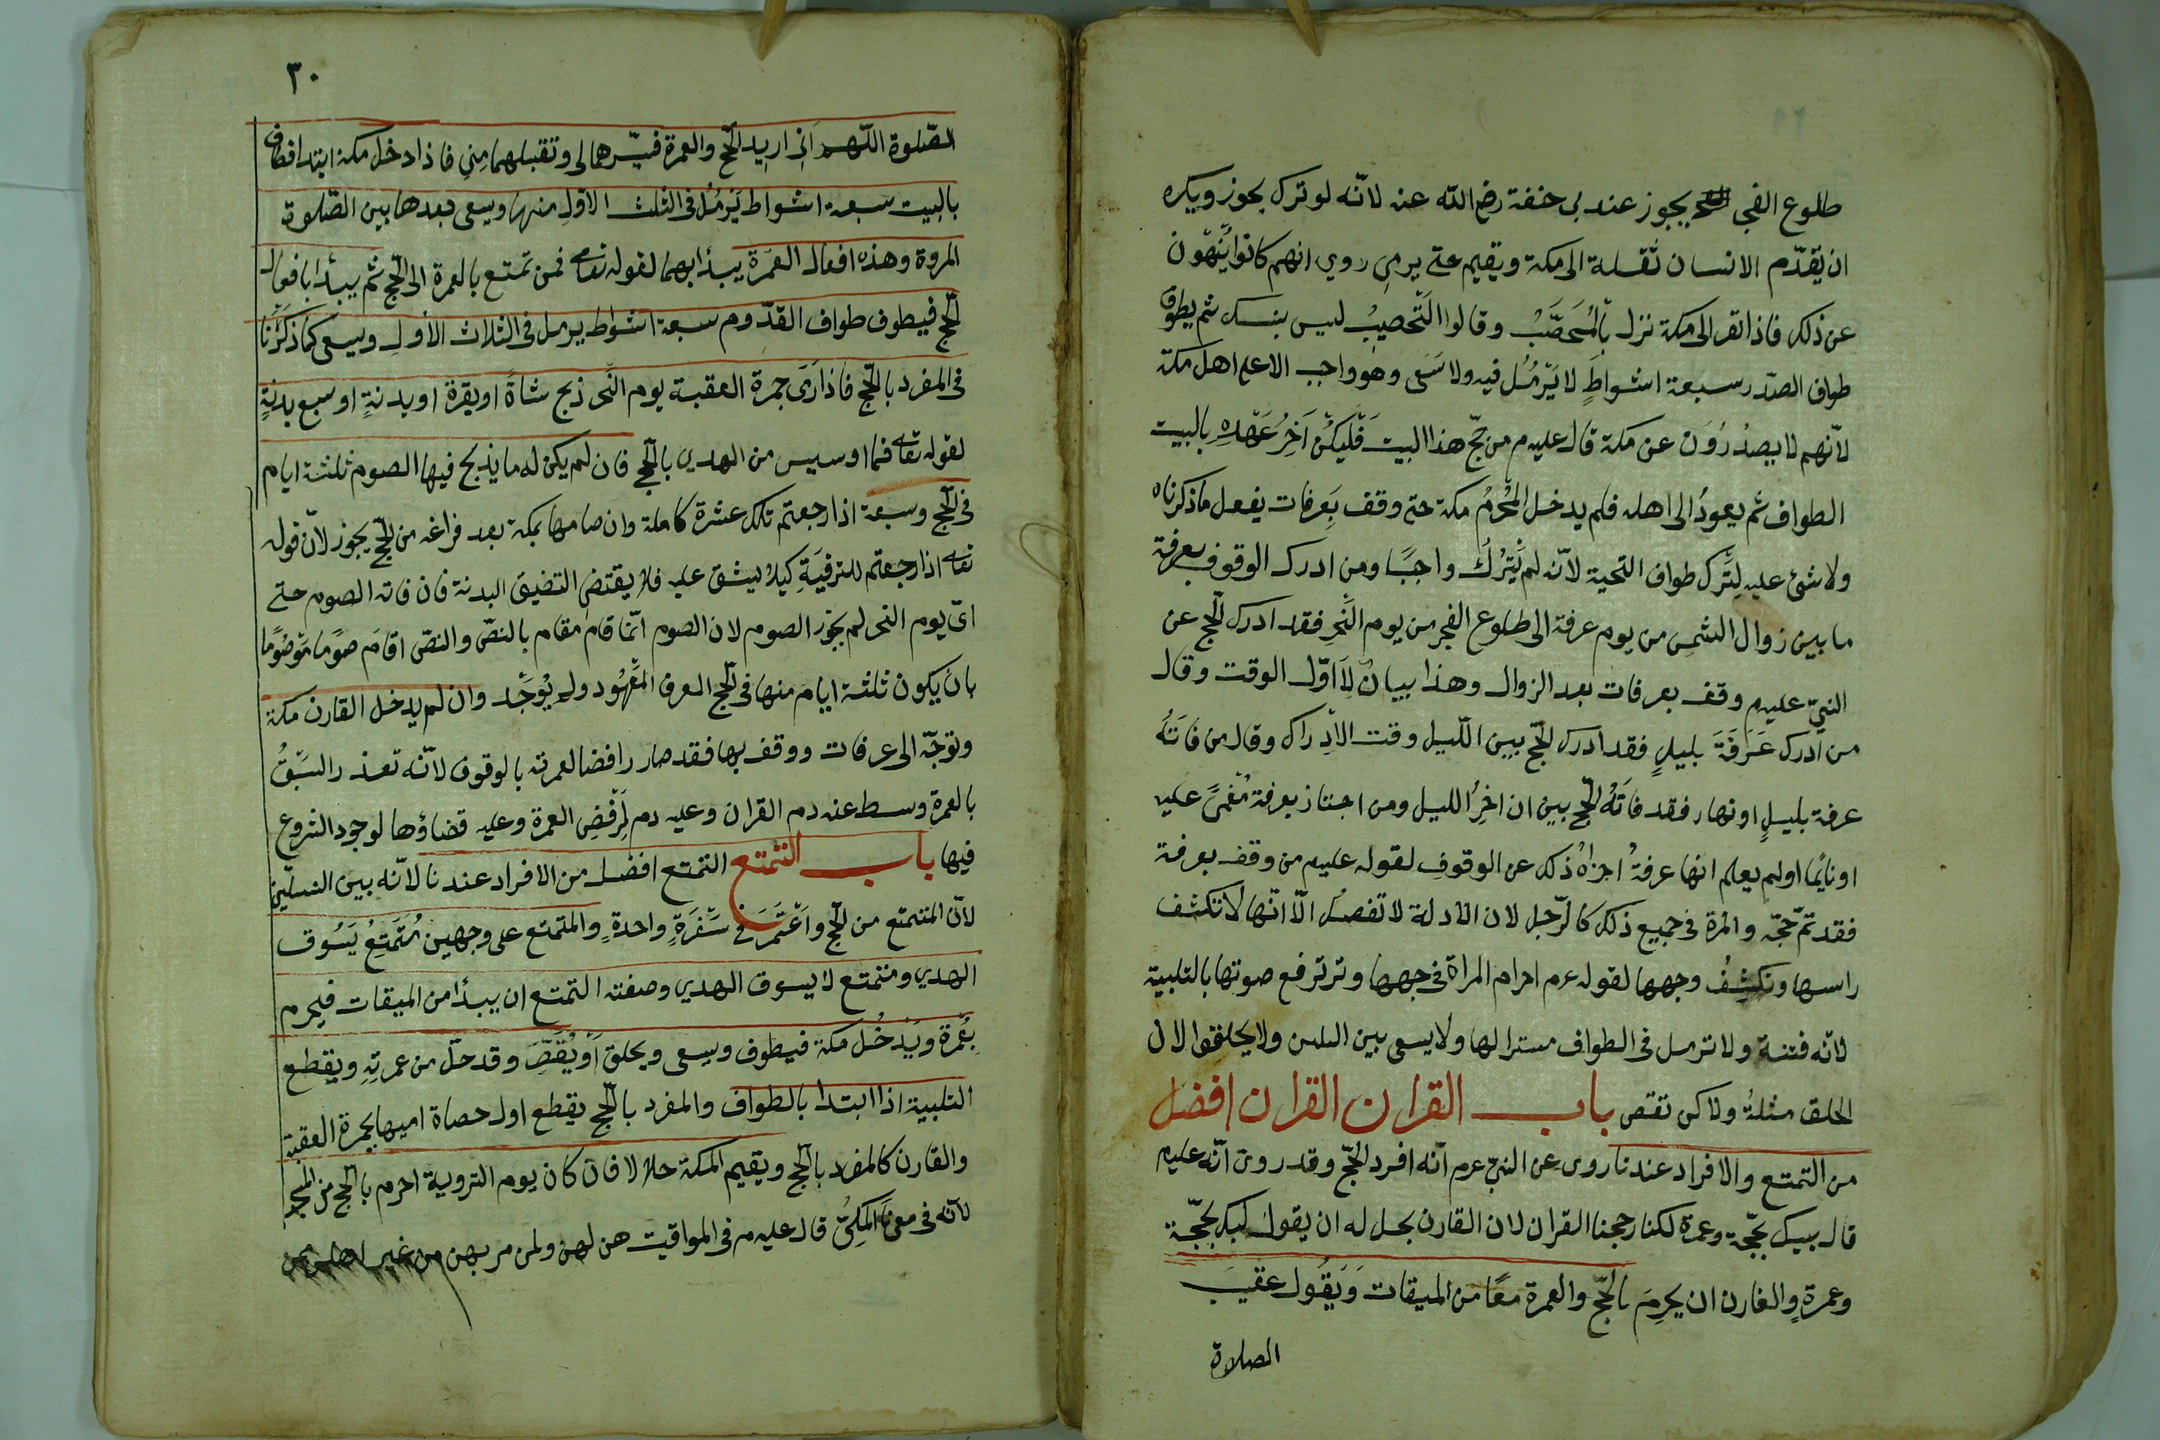 طلوع الفجر يجوز عند بى حنفة رضى الله عنه لانّه لو ترك يجوز ويكره
ان يقدّم الانسان ثقله الى مكة ويقيم حتى يرمى روي انهم كانوا ينهون
عن ذلك فاذا نفر الى مكة نزل بالمُحَصَّبْ وقالوا التحصيبُ ليس بنسك ثم يطوف
طواف الصدر سبعة اشواطٍ لا يَرْمُل فيه ولا سَعَى وهو واجب الا على اهل مكة
لانّهم لا يصدُرُوَن عن مكة قال عليه م من حجّ هذا البيت فَلْيَكُنْ اَخِرُ عَهْدِهِ بالبيت
الطواف ثم يعودُ الى اهله فلم يدخل المُحْرِمُ مكة حتى وقف بَعِرفات يفعل ما ذكرناه
ولا شئ عليه لِتَرك طواف التحية لانّه لم يَتْرُك واجبًا ومن ادرك الوقوف بعرفة
ما بين زوال الشمس من يوم عرفة الى طلوع الفجر من يوم النَّحِر فقد ادرك الحجّ عن
النبيّ عليه م وقف بعرفات بعد الزوال وهذا بيانٌ لِاَوّل الوقت وقال
من اَدرك عَرَفَةَ بليلٍ فقد ادرك الحجّ بين اللّيل وقت الاِدراك وقال من فَاتَهُ
عرفة بليلٍ او نهار فقد فَاتَهُ الحجّ بين ان اخِرُ الليل ومن اجتاز بعرفة مُغْمىً عليه
او نائما او لم يعلم انها عرفةُ اجزاهُ ذلك عن الوقوفِ لقوله عليه م من وقف بعرفة
فقد تمّ حَجّه والمرة فى جميع ذلك كالرّجل لان الادلة لا تفصل الّا انّها لا تكشف
راسها وتكشِفُ وجهها لقوله عم احرام المراة فى جهها وترترفع صوتها بالتلبية
لانّه فتنة ولا ترمل فى الطواف مسترا لها ولا يسعى بين ولا يحلقوا لان
الحلق مثلةُ ولاكن تقص باب القران القران افضل
من التمتع والافراد عندنا روى عن النبىّ عم انّه افرد الحجّ وقد روى انّه عليه م
قال بيك بحجّة وعمرة لكنا رجحنا القران لان القارن يحل له ان يقول لبيك بحجّة
وعمرةٍ والقارن ان يحرِمَ بالحجّ والعمرة معًا من الميقات وَيَقُول عقيَب
الصلاة
٣٠
الصّلوة اللّهم اَنى اريد الحجّ والعمرة فيسّرهما لى وتقبلهما مِنِى فاذا دخل مكة ابتدا فطاف
بالبيت سبعة اشواط يَرْمُل فى الثلث الاوّل منها ويسعى فبعدها بين الصّلوة
المروة وهذه افعال العمَرة يبدأ بهما لقوله تعا فمن تمتع بالعمرة الى الحجّ ثمّ يبدأ بافعال
الحجّ فيطوف طواف القدّوم سبعة اشواط يرمل فى الثلاث الأول ويسعى كما ذَكَرْنا
فى المفرد بالحجّ فاذا رَمَى جمرة العقبة يوم النَّحر ذبح شاةً او بقرة او بدنةٍ او سبع بدنةٍ
لقوله تعا فما اوسيس من الهدي بالحجّ فان لم يكن له ما يذبح فيها الصوم ثلثة ايام
فى الحجّ وسبعة اذا رجعتم تلك عشرة كاملة وان صامها بمكة بعد فراغه من الحجّ يجوز لانّ قوله
تعا اذا رجعتم للترفيَةِ كيلا يشق عليه فلا يقتضى التضيق البدنة فان فاته الصوم حتى
اتى يوم النحر لم يجز الصوم لان الصوم انّما قام مقام بالنصّ والنصّ اقامَ صوًما موْصُوًفا
بان يكون ثلثة ايام منها فى الحجّ العرف المَعْهُود ولم يُوجَد وان لم يدخل القارن مكة
وتوجّه الى عرفات ووقف بها فقد صار رافضا لعمرته بالوقوف لانّه تعذر السَبْقُ
بالعمرة وسط عنه دم القران وعليه دم لِرَفْضِ العمرة وعليه قضاؤها لوجود الشروع
فيها باب التمتع التمتع افضل من الافراد عندنا لانّه بين النسكين
لانّ المتمتع من الحجّ واَعْتَمَرَ فى سَفَرَةٍ واحدةٍ والمتمتع على وجهين مُتَمتِعُ يَسُوق
الهدي ومتمتع لا يسوق الهدي وصفته التمتع ان يبدأ من الميقات فيحرم
بِعُمْرة ويَدْخُل مكة فيطوف ويسعى ويحلق أَو يُقَصِّر وقد حلّ من عمرتِهِ ويقطع
التلبية اذا ابتدا بالطواف والمفرد بالحجّ يقطع اول حصاة اميها بجمرة العقبة
والقارن كالمفرد بالحجّ ويقيم المكة حلالا فان كان يوم التروية احرم بالحجّ من المسجد
لانّه فى معنى المكِىّ قال عليه م فى المواقيت هن لهن ولمن مر بهن من غير اهلهن